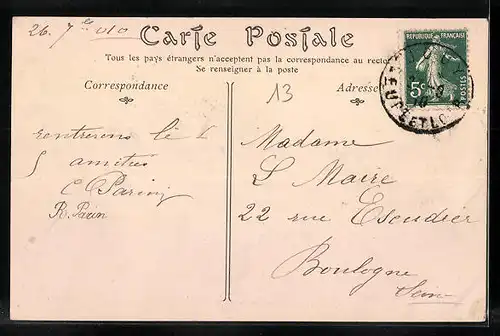 26. 7
Carte Postale
Tous les pays étrangers n'acceptent pas la correspondance au recto
Se renseigner à la poste
Correspondance
Adresse
13
REPUBLIQUE FRANÇAISE
5c
POSTES
EURE ET LOIR
rentrerons le
amitiés
R. Parin
Madame
L Maire
22 rue Escudier
Boulogne
Seine